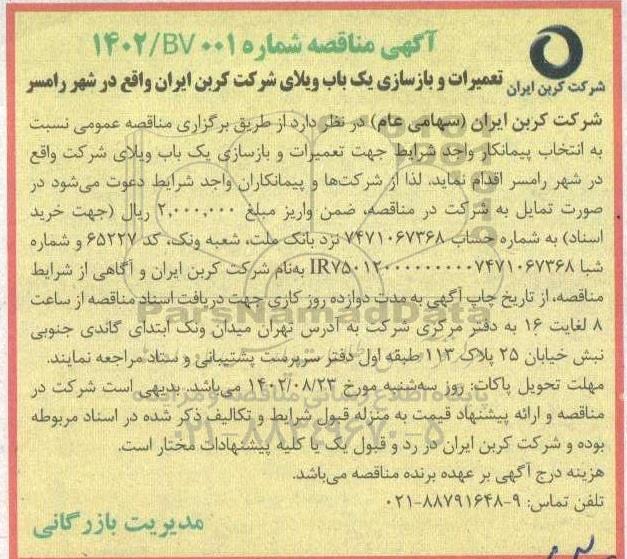 آگهی مناقصه شماره ۱۴۰۲/BV۰۰۱
شرکت کربن ایران
تعمیرات و بازسازی یک باب ویلای شرکت کربن ایران واقع در شهر رامسر
شرکت کربن ایران (سهامی عام) در نظر دارد از طریق برگزاری مناقصه عمومی نسبت
به انتخاب پیمانکار واجد شرایط جهت تعمیرات و بازسازی یک باب ویلای شرکت واقع
در شهر رامسر اقدام نماید، لذا از شرکت‌ها و پیمانکاران واجد شرایط دعوت می‌شود در
صورت تمایل به شرکت در مناقصه، ضمن واریز مبلغ ۲,۰۰۰,۰۰۰ ریال (جهت خرید
اسناد) به شماره حساب ۷۴۷۱۰۶۷۳۶۸ نزد بانک ملت، شعبه ونک، کد ۶۵۲۲۷ و شماره
شبا IR۷۵۰۱۲۰۰۰۰۰۰۰۰۰۰۷۴۷۱۰۶۷۳۶۸ به‌نام شرکت کربن ایران و آگاهی از شرایط
مناقصه، از تاریخ چاپ آگهی به مدت دوازده روز کاری جهت دریافت اسناد مناقصه از ساعت
۸ لغایت ۱۶ به دفتر مرکزی شرکت به آدرس تهران میدان ونک ابتدای گاندی جنوبی
نبش خیابان ۲۵ پلاک ۱۱۳ طبقه اول دفتر سرپرست پشتیبانی و ستاد مراجعه نمایند.
مهلت تحویل پاکات: روز سه‌شنبه مورخ ۱۴۰۲/۰۸/۲۳ می‌باشد. بدیهی است شرکت در
مناقصه و ارائه پیشنهاد قیمت به منزله قبول شرایط و تکالیف ذکر شده در اسناد مربوطه
بوده و شرکت کربن ایران در رد و قبول یک یا کلیه پیشنهادات مختار است.
هزینه درج آگهی بر عهده برنده مناقصه می‌باشد.
تلفن تماس: ۹-۸۸۷۹۱۶۴۸-۰۲۱
مدیریت بازرگانی
ParsNamadData
پایگاه اطلاع رسانی مناقصه و مزایده
۰۲۱-۸۸۳۴۹۶۷۰-۵